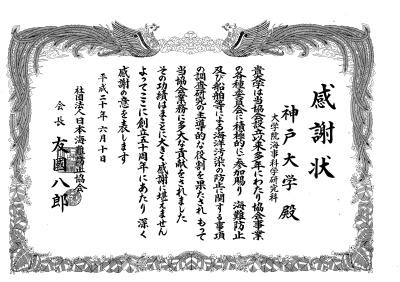 感謝状
神戸大学 殿
大学院海事科学研究科
貴学は当協会設立以来多年にわたり協会事業
の各種委員会に積極的に参加賜り 海難防止
及び船舶等による海洋汚染の防止に関する事項
の調査研究の主導的な役割を果たされ もって
当協会業務に多大な貢献をされました
その功績はまことに大きく感謝に堪えません
よってここに創立五十周年にあたり 深く
感謝の意を表します
平成二十年 六月 十日
社団法人日本海難防止協会
会長 友國八郎